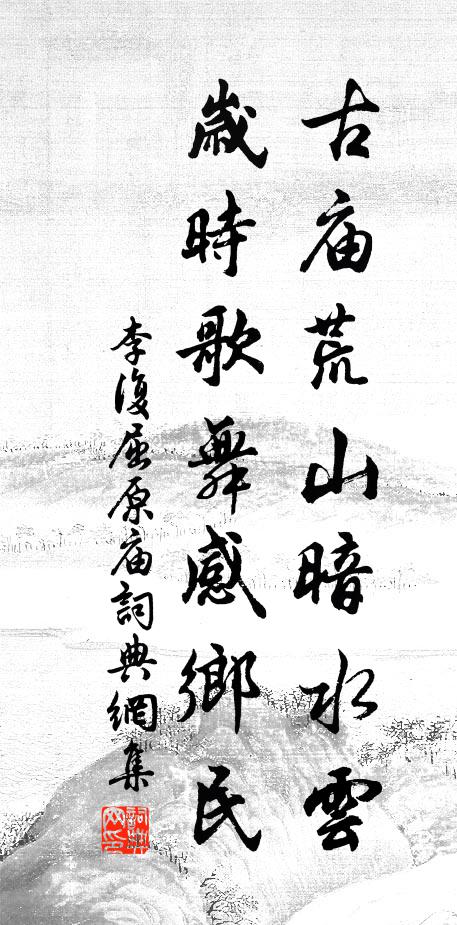 古庙荒山暗水雲
歲時歌舞感鄉民
李復屈原庙詞典網集